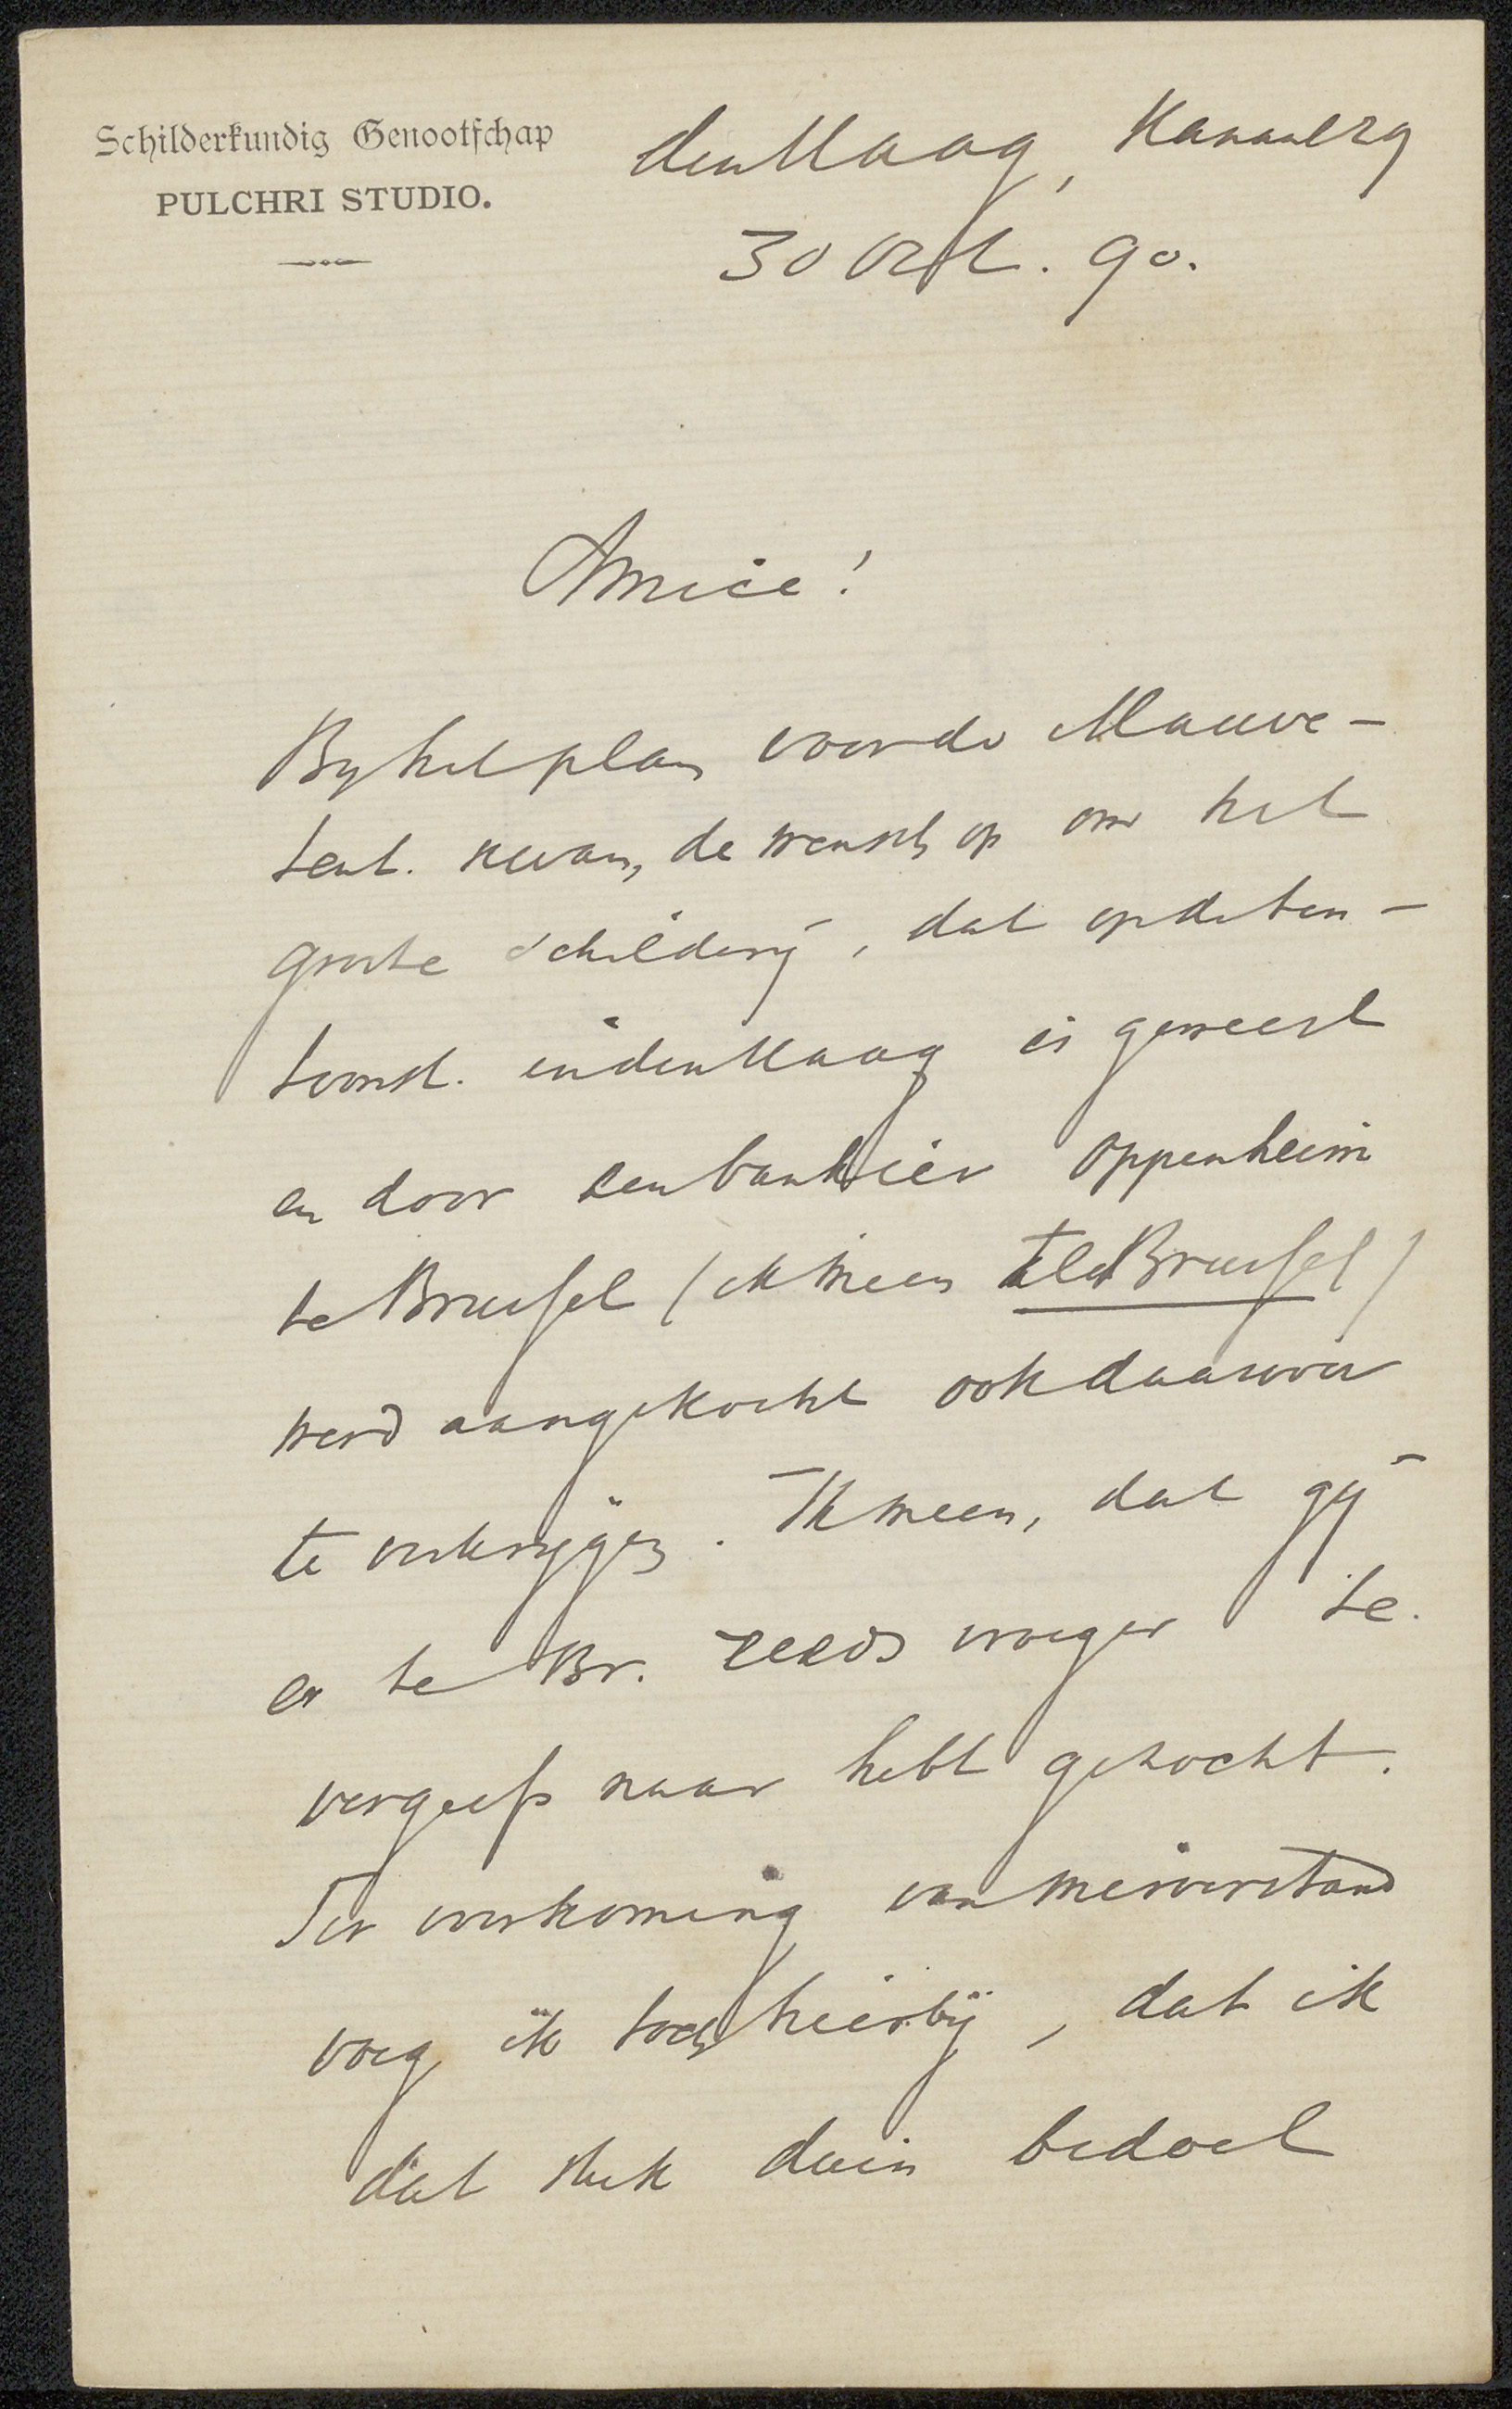 Schilderkundig Genootschap
PULCHRI STUDIO.
den Haag, Kanaalweg
30 Oct. 90.
Amice!
By het plan voor de Mauve-
tent. kwam, de wensch op om het
groote schildery, dat op de ten-
toonst. in den Haag is geweest
en door den bankier Oppenheim
te Brussel (ik meen te Brussel)
werd aangekocht ook daarvoor
te verkrygen. Ik meen, dat gy
er te Br. reeds vroeger te.
vergeefs naar hebt gezocht.
Ter voorkoming van misverstand
voeg ik toch hierby, dat ik
dat stuk duin bedoel